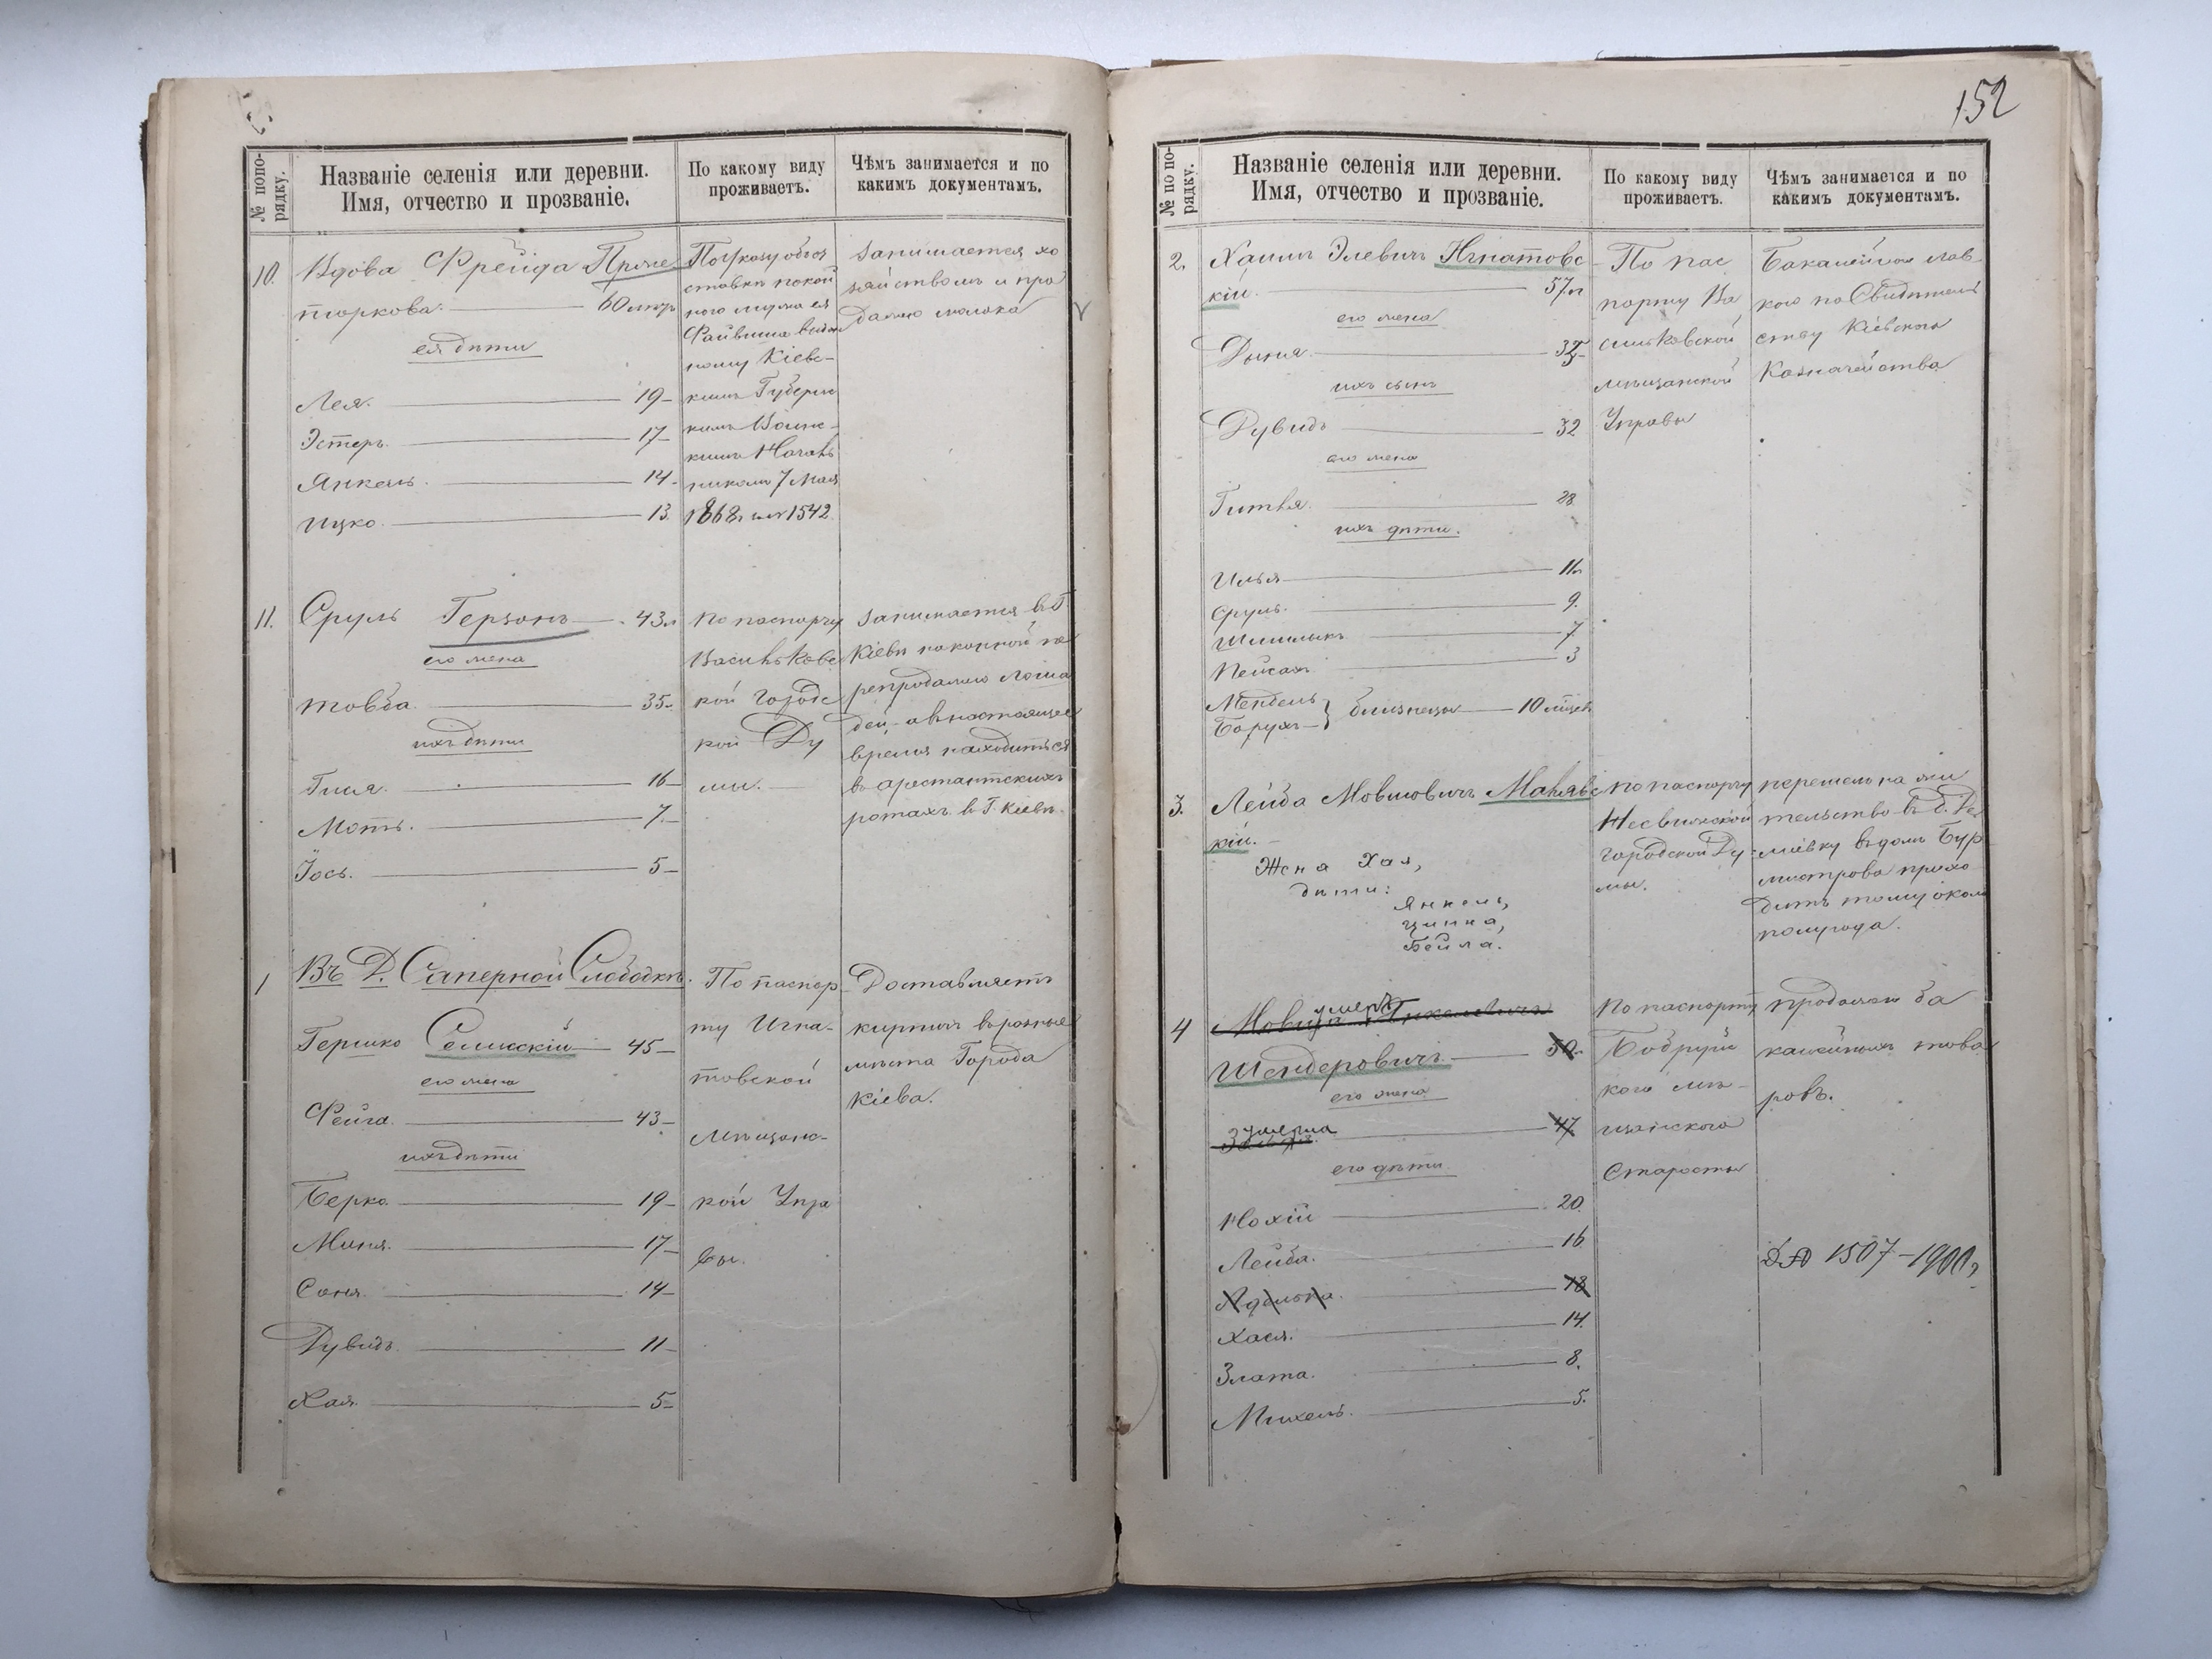 № попо-
рядку.
Названіе селенія или деревни.
Имя, отчество и прозваніе.
По какому виду
проживаетъ.
Чѣмъ занимается и по
какимъ документамъ.
10.
Вдова Фрейда Прже
тюркова. 60 лѣтъ
ея дѣти
Лея. 19
Эстеръ. 17
Янкель. 14
Ицко. 13
По указу объ от
ставкѣ покой
ного мужа ея
Файвиша выдан
ному Кіевс-
кимъ Губернс
кимъ Воинс-
кимъ Началь
никомъ 7 Мая
1868 г за № 1542
Занимается хо
зяйствомъ и про
дажею молока
11.
Сруль Герзонъ 43 л
его жена
Товба. 35
ихъ дѣти
Гитля. 16
Моть. 7
Іось. 5
По паспорту
Васильковс
кой Городс
кой Ду
мы.
Занимается въ Г.
Кіевѣ покупкой пе
репродажею лоша
дей, а въ настоящее
время находиться
въ арестантскихъ
ротахъ в Г. Кіевѣ.
Въ Д. Саперной Слободкѣ.
1
Гершко 45
его жена
Фейга. 43
ихъ дѣти
Берко. 19
Миня. 17
Соня. 14
Дувидъ. 11
Хая. 5
По паспор
ту Игна-
товской
Мѣщанс-
кой Упра
вы.
Доставляетъ
кирпичъ въ разные
мѣста Города
Кіева.
152
№ по по-
рядку.
Названіе селенія или деревни.
Имя, отчество и прозваніе.
По какому виду
проживаетъ.
Чѣмъ занимается и по
какимъ документамъ.
2.
Хаимъ Элевичъ Игнатовс
кій. 57 л
его жена
Дыня.
ихъ сынъ
Дувидъ 32
его жена
Гитля. 28
ихъ дѣти.
Илья 11
Сруль. 9
Шмилыкъ 7
Пейсахъ 3
Мендель
Борухъ } близнецы 10 мѣсяц
По пас
порту Ва
сильковской
мѣщанской
Управы
Бакалейная лав
кою по Свидѣтель
ству Кіевскаго
Казначейства
3.
Лейба Мовшовичъ Манявс
кій.
Жена Хая,
дѣти:
Янкель,
Ципка,
Бейла.
По паспорту
Несвижской
Городской Ду-
мы.
перешелъ на жи
тельство въ д. Де
міевку въ домъ Бур
мистрова прихо
дитъ тому около
полугода.
4
Мовша умеръ
Шендеровичъ. 50
его жена
умерла 47
его дѣти
Нохій 20
Лейба. 16
Адѣлька. 18
Хася. 14
Злата. 8
Михель. 5
По паспорту
Бобруйс
кого мѣ-
щанского
Старосты
продажею ба
калейныхъ това
ровъ.
1507-1900 г